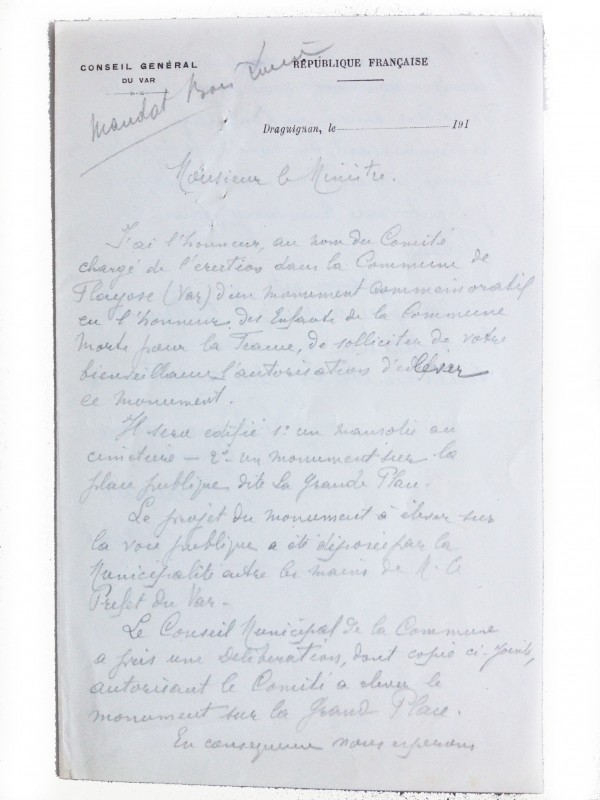 CONSEIL GÉNÉRAL
DU VAR
RÉPUBLIQUE FRANÇAISE
Mandat
Draguignan, le 191
Monsieur le Ministre.
J'ai l'honneur, au nom du Comité
chargé de l'erection dans la Commune de
Flayosc (Var) d'un monument commémoratif
en l'honneur des Enfants de la Commune
morts pour la France, de solliciter de votre
bienveillance l'autorisation d'élever
ce monument.
Il sera édifié 1º un mausolée au
cimetière - 2º un monument sur la
place publique dite La Grande Place.
Le projet du monument à élever sur
la voie publique a été déposé par la
Municipalité entre les mains de M. le
Préfet du Var.
Le Conseil Municipal de la Commune
a pris une Délibération, dont copie ci-jointe,
autorisant le Comité a elever le
monument sur la Grand Place.
En conséquence nous esperons